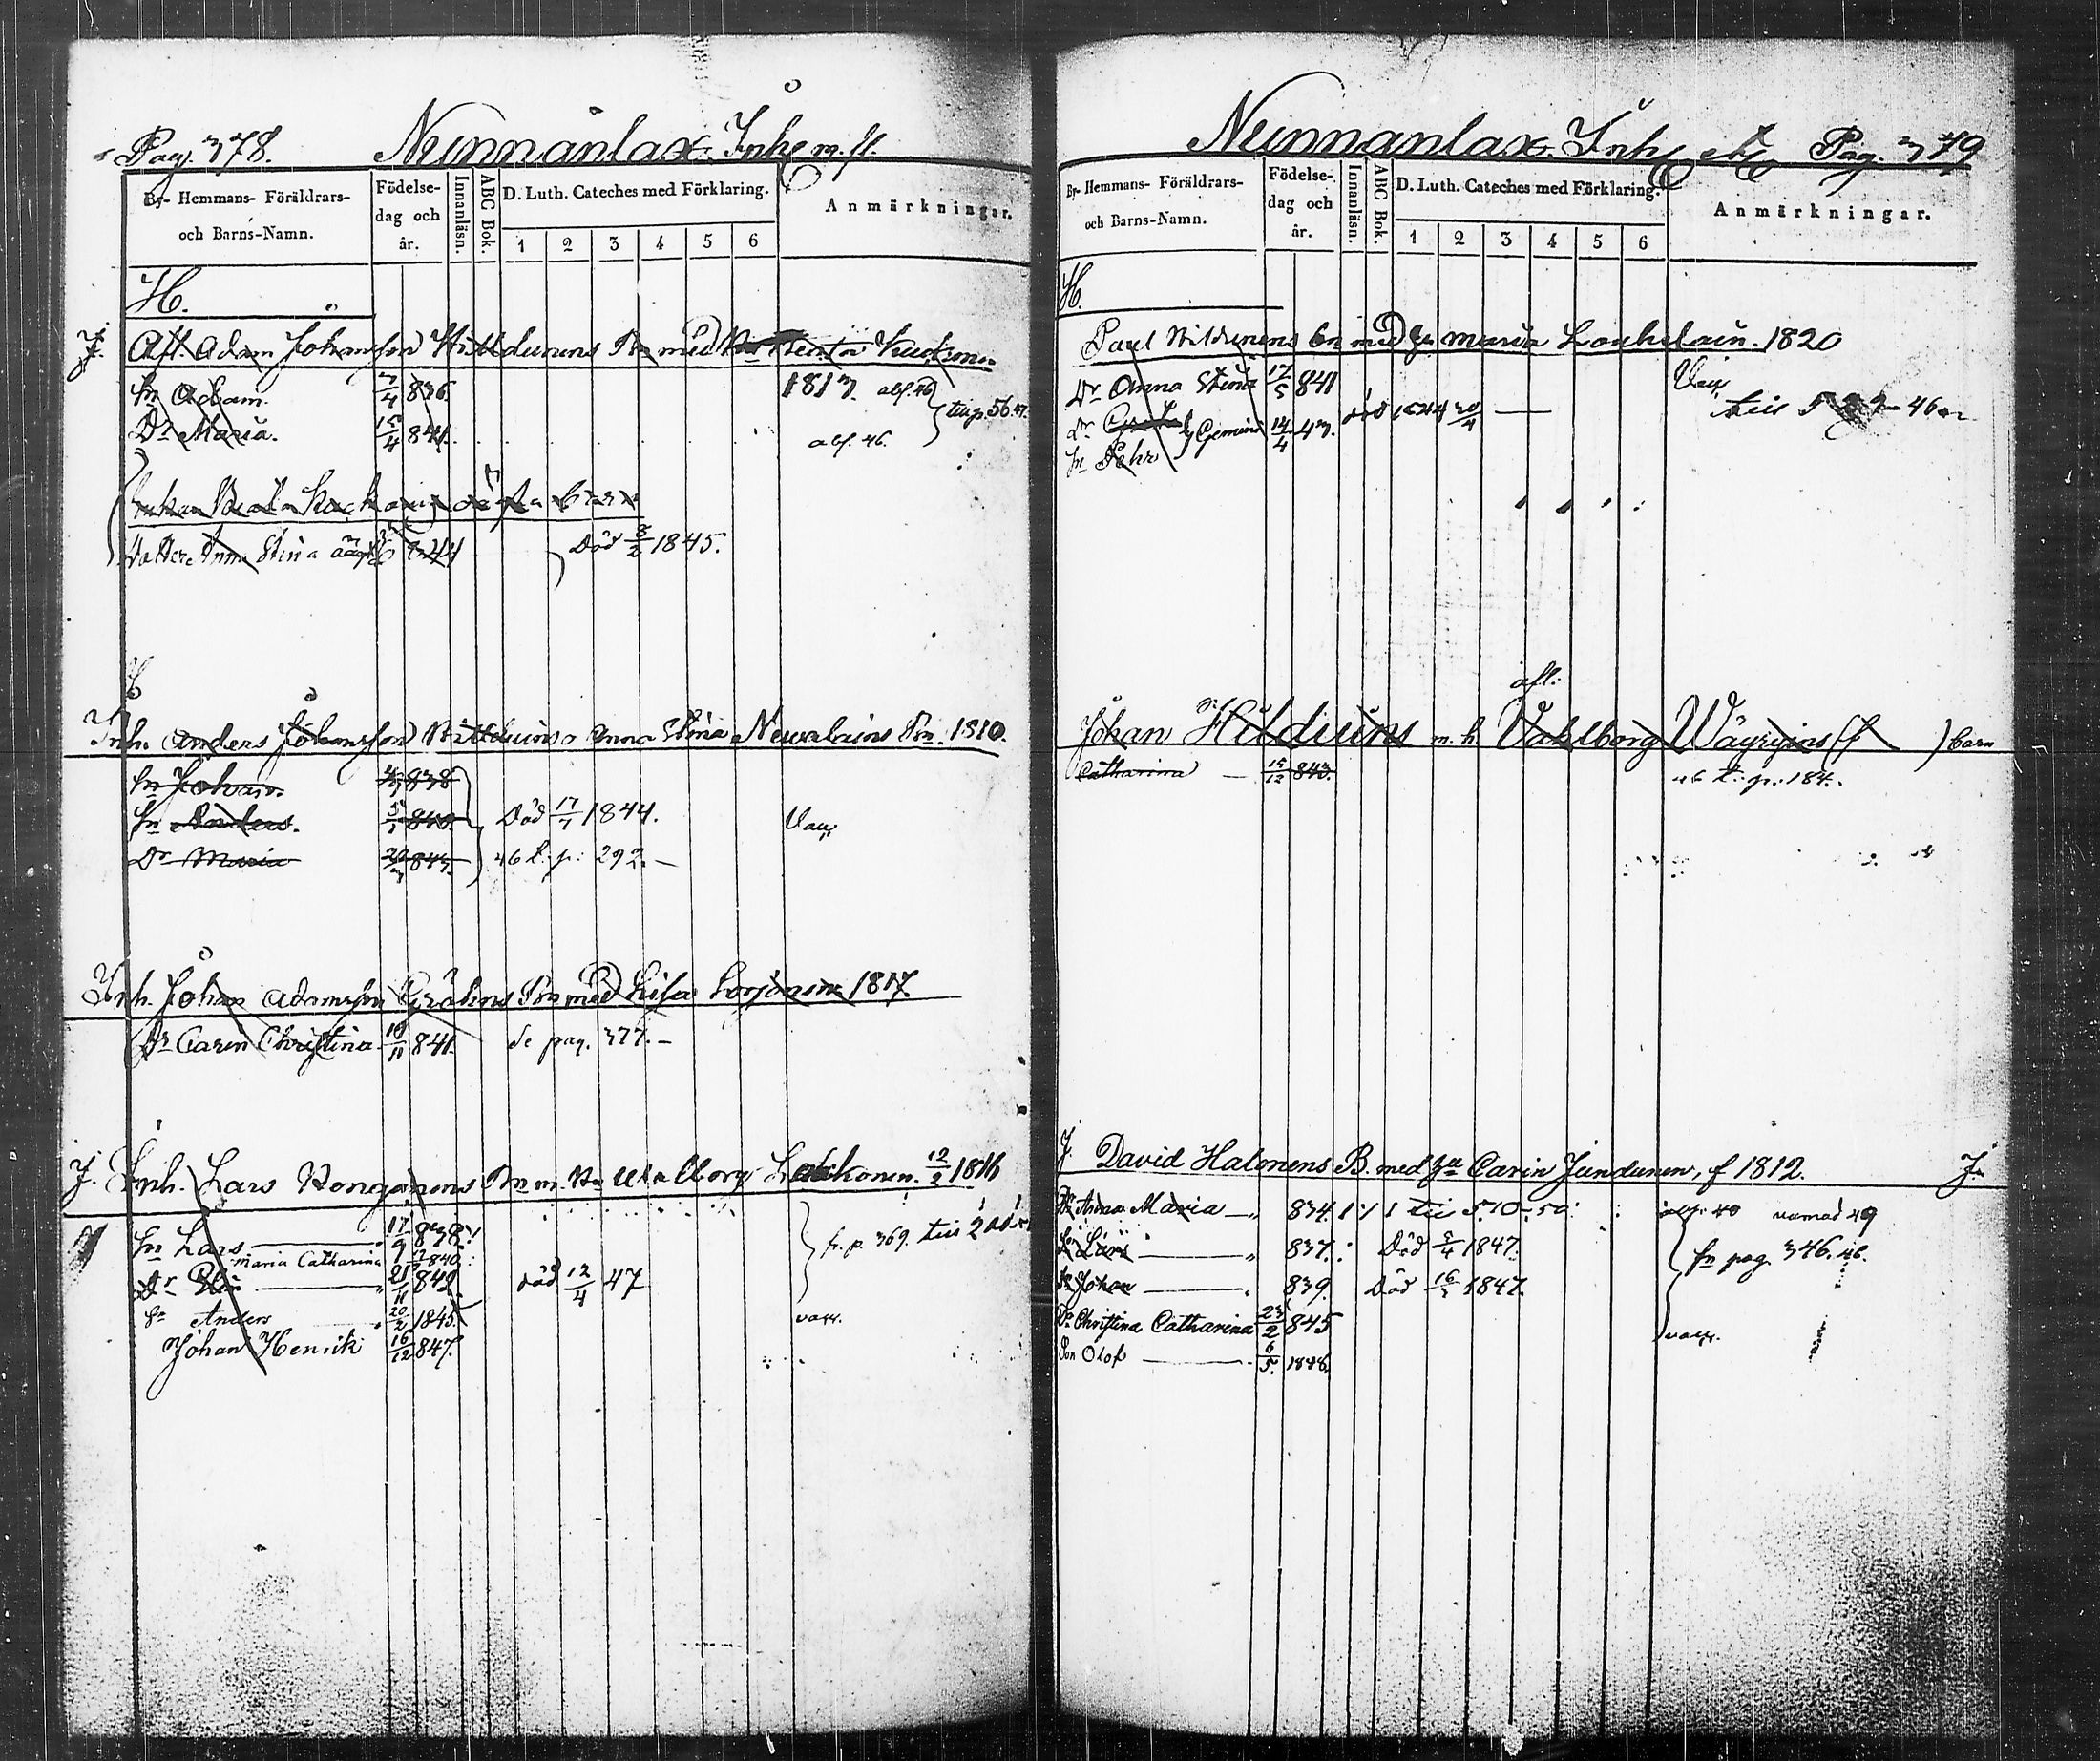 Pag. 378. Nunnanlax Inh. m. fl.
By- Hemmans- Föräldrars- och Barns-Namn.
Födelse- dag och år.
Innanläsn.
ABC Bok.
D. Luth. Cateches med Förklaring.
1 2 3 4 5 6
Anmärkningar.
H.
J. Afl. Adam Johansson Hilldunens Bn med Beata
Sn Adam. 7/4 836 1817. abf. 46
Dr Maria. 15/4 841. abf. 46.
Enkan Beata
Dotter Anna Stina 844 Död 8/2 1845.
Inh. Anders Johansson Hilldunens o Anna Stina Nevalains Bn. 1810.
Sn Johan. 838
Sn Anders. 840. Död 17/7 1844. Vac.
Dr Maria 843. 46 t. p: 292.
Inh. Johan Adamsson Gröhns Bn med Lisa Sorjonen 1817.
Dr Carin Christina 10/11 841. se pag. 377.
J. Inh. Lars Rongonens Bn m. Hu Walborg 12/2 1816
Sn Lars 17/9 838 fr. p. 369.
Maria Catharina 840
Dr 21/11 842 död 12/4 47
Sn Anders 20/2 1845. vacc.
Johan Henrik 16/12 847.
Nunnanlax Inh. Pag. 379
By- Hemmans- Föräldrars- och Barns-Namn.
Födelse- dag och år.
Innanläsn.
ABC Bok.
D. Luth. Cateches med Förklaring.
1 2 3 4 5 6
Anmärkningar.
H.
Paul Hildunens bn med Hu Maria Louhelain. 1820
Dr Anna Stina 17/5 841 Vac.
Dr Greta död 1844 30/4
Sn Pehr Gemini 14/4 43.
afl:
Johan Hildunens m. h. Vahlborg Wäyrynens Barn
Catharina 15/12 843. 46 t: p: 184.
J. David Halonens B. med Hu Carin Jundunen, f 1812. J.
Dr Anna Maria 834. vamad 49
Sn Lars 837. Död 8/4 1847. fr pag. 346. 46.
Sn Johan 839 Död 16/3 1847.
Dr Christina Catharina 23/2 845
Son Olof 6/5 1848. vacc.